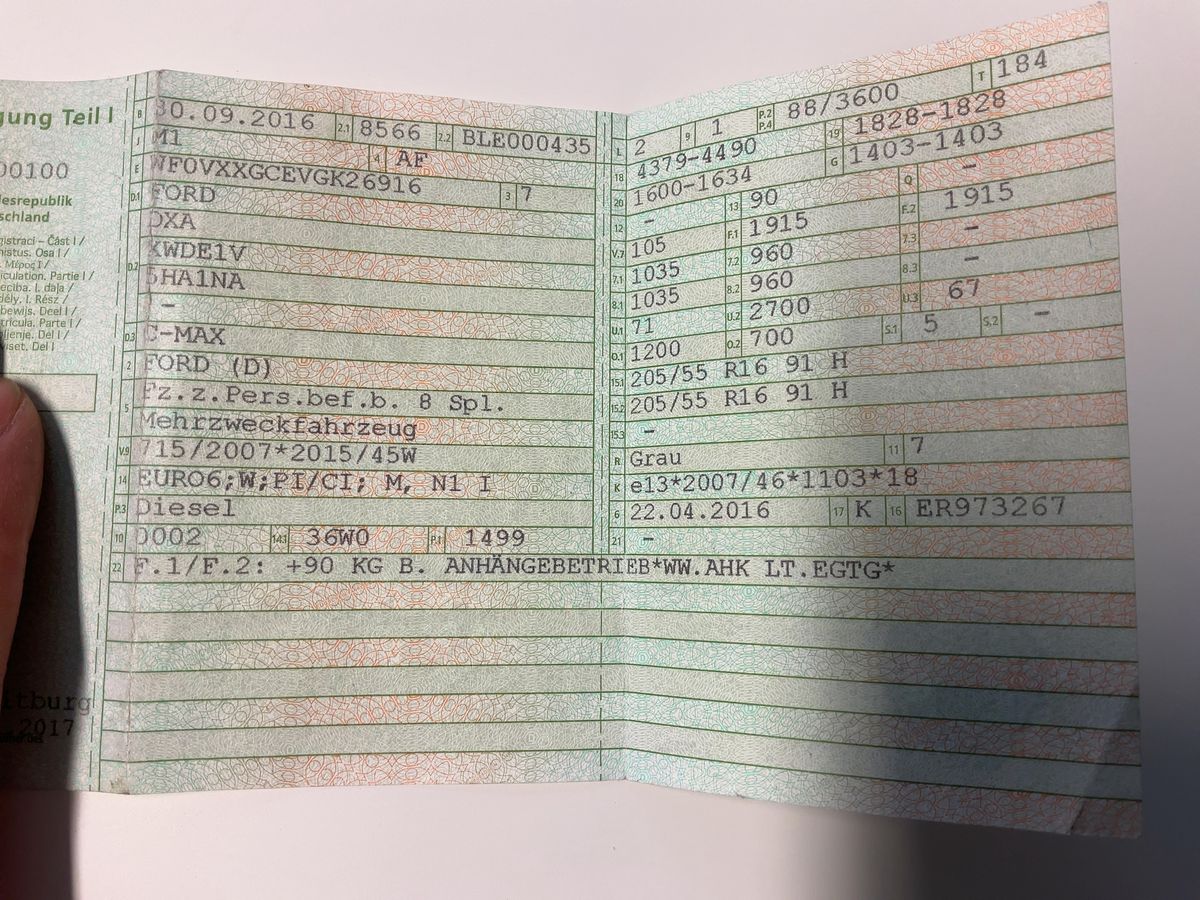 gung Teil I
00100
desrepublik
schland
gistrací – Část I /
nistus. Osa I /
Μέρος I /
iculation. Partie I /
ecība. I. daļa /
dély. I. Rész /
bewijs. Deel I /
trícula. Parte I /
ljenje. Del I /
viset. Del I
itburg
2017
B 30.09.2016 2.1 8566 2.2 BLE000435
J M1 4 AF
E WF0VXXGCEVGK26916 3 7
D.1 FORD
DXA
D.2 XWDE1V
5HA1NA
-
D.3 C-MAX
2 FORD (D)
5 Fz.z.Pers.bef.b. 8 Spl.
Mehrzweckfahrzeug
V.9 715/2007*2015/45W
14 EURO6;W;PI/CI; M, N1 I
P.3 Diesel
10 0002 14.1 36W0 P.1 1499
22 F.1/F.2: +90 KG B. ANHÄNGEBETRIEB*WW.AHK LT.EGTG*
L 2 9 1 P.2 P.4 88/3600 T 184
18 4379-4490 19 1828-1828
20 1600-1634 G 1403-1403
12 - 13 90 Q -
V.7 105 F.1 1915 F.2 1915
7.1 1035 7.2 960 7.3 -
8.1 1035 8.2 960 8.3 -
U.1 71 U.2 2700 U.3 67
O.1 1200 O.2 700 S.1 5 S.2 -
15.1 205/55 R16 91 H
15.2 205/55 R16 91 H
15.3 -
R Grau 11 7
K e13*2007/46*1103*18
6 22.04.2016 17 K 16 ER973267
21 -